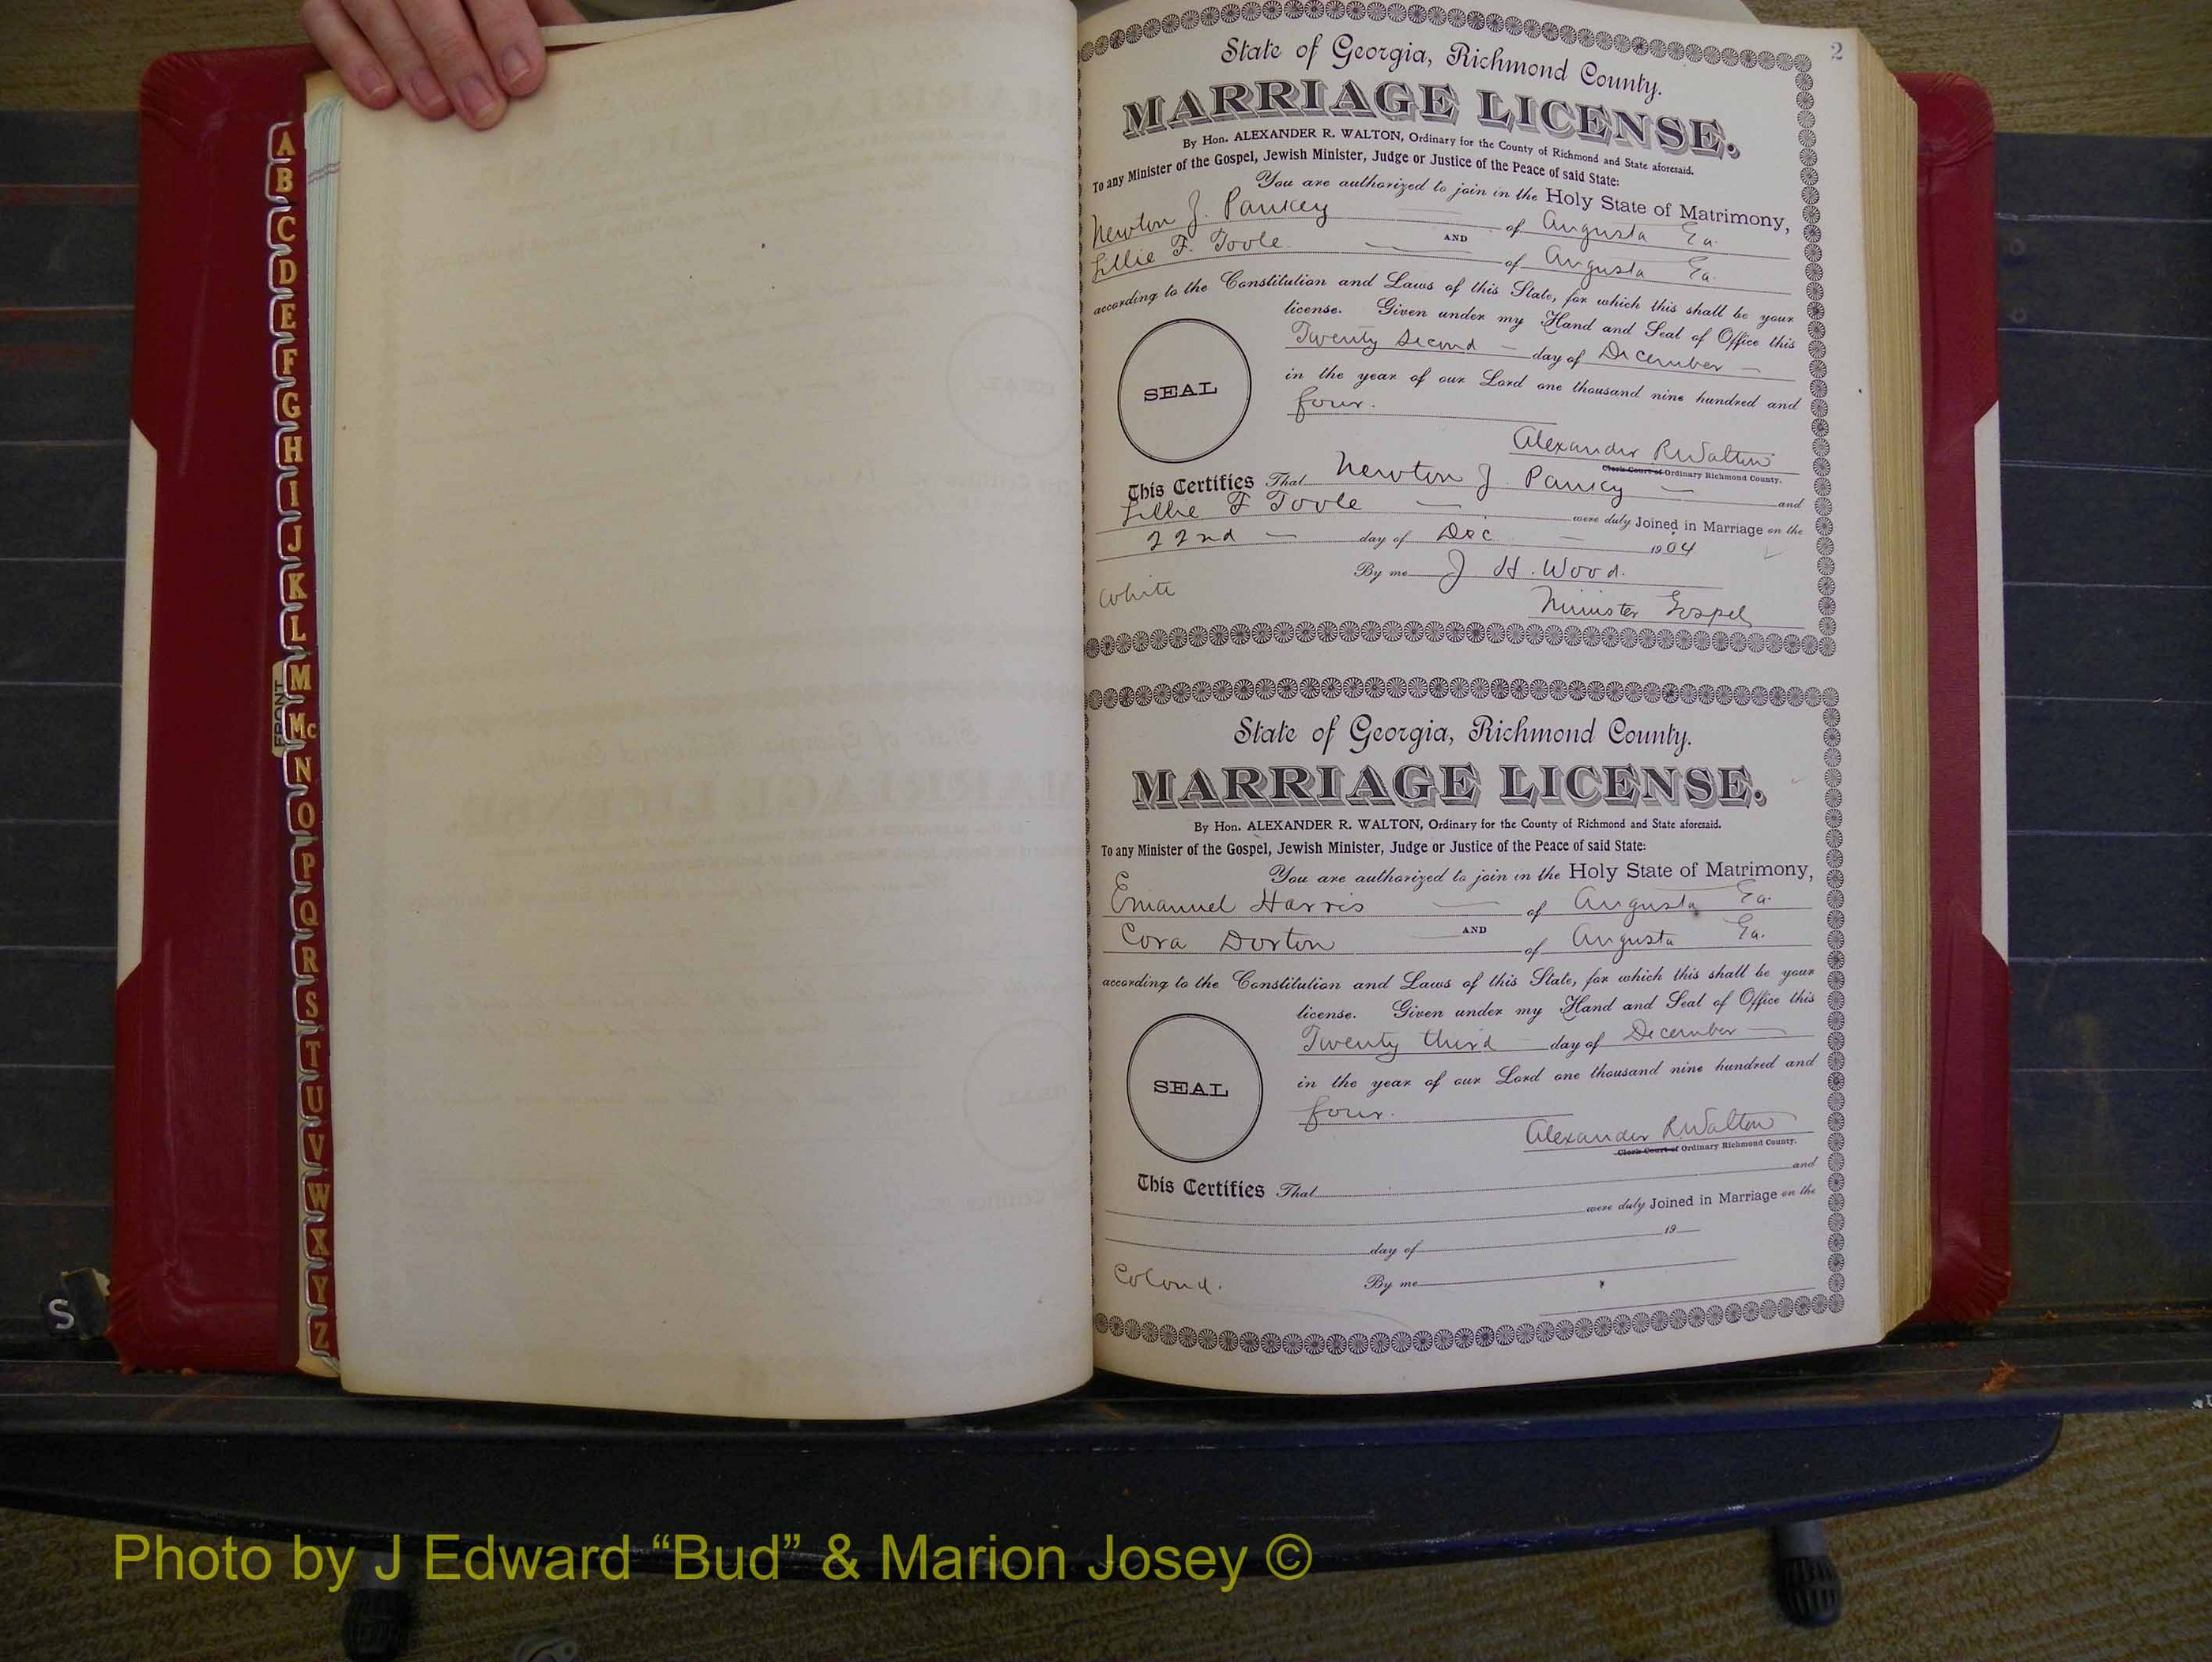 A
B
C
D
E
F
G
H
I
J
K
L
M
Mc
N
O
P
Q
R
S
T
U
V
W
X
Y
Z
FRONT
S
2
State of Georgia, Richmond County.
MARRIAGE LICENSE.
By Hon. ALEXANDER R. WALTON, Ordinary for the County of Richmond and State aforesaid.
To any Minister of the Gospel, Jewish Minister, Judge or Justice of the Peace of said State:
You are authorized to join in the Holy State of Matrimony,
Newton J. Pankey of Augusta Ga.
AND
Lillie F. Toole of Augusta Ga.
according to the Constitution and Laws of this State, for which this shall be your
license. Given under my Hand and Seal of Office this
Twenty Second day of December
in the year of our Lord one thousand nine hundred and
four.
SEAL
Alexander R Walton
Clerk Court of Ordinary Richmond County.
This Certifies That Newton J. Pankey and
Lillie F Toole were duly Joined in Marriage on the
22nd day of Dec 1904
By me J H. Wood.
White
Minister Gospel
State of Georgia, Richmond County.
MARRIAGE LICENSE.
By Hon. ALEXANDER R. WALTON, Ordinary for the County of Richmond and State aforesaid.
To any Minister of the Gospel, Jewish Minister, Judge or Justice of the Peace of said State:
You are authorized to join in the Holy State of Matrimony,
Emanuel Harris of Augusta Ga.
AND
Cora Dorton of Augusta Ga.
according to the Constitution and Laws of this State, for which this shall be your
license. Given under my Hand and Seal of Office this
Twenty third day of December
in the year of our Lord one thousand nine hundred and
four.
SEAL
Alexander R. Walton
Clerk Court of Ordinary Richmond County.
This Certifies That and
were duly Joined in Marriage on the
day of 19
Colored.
By me
Photo by J Edward “Bud” & Marion Josey ©